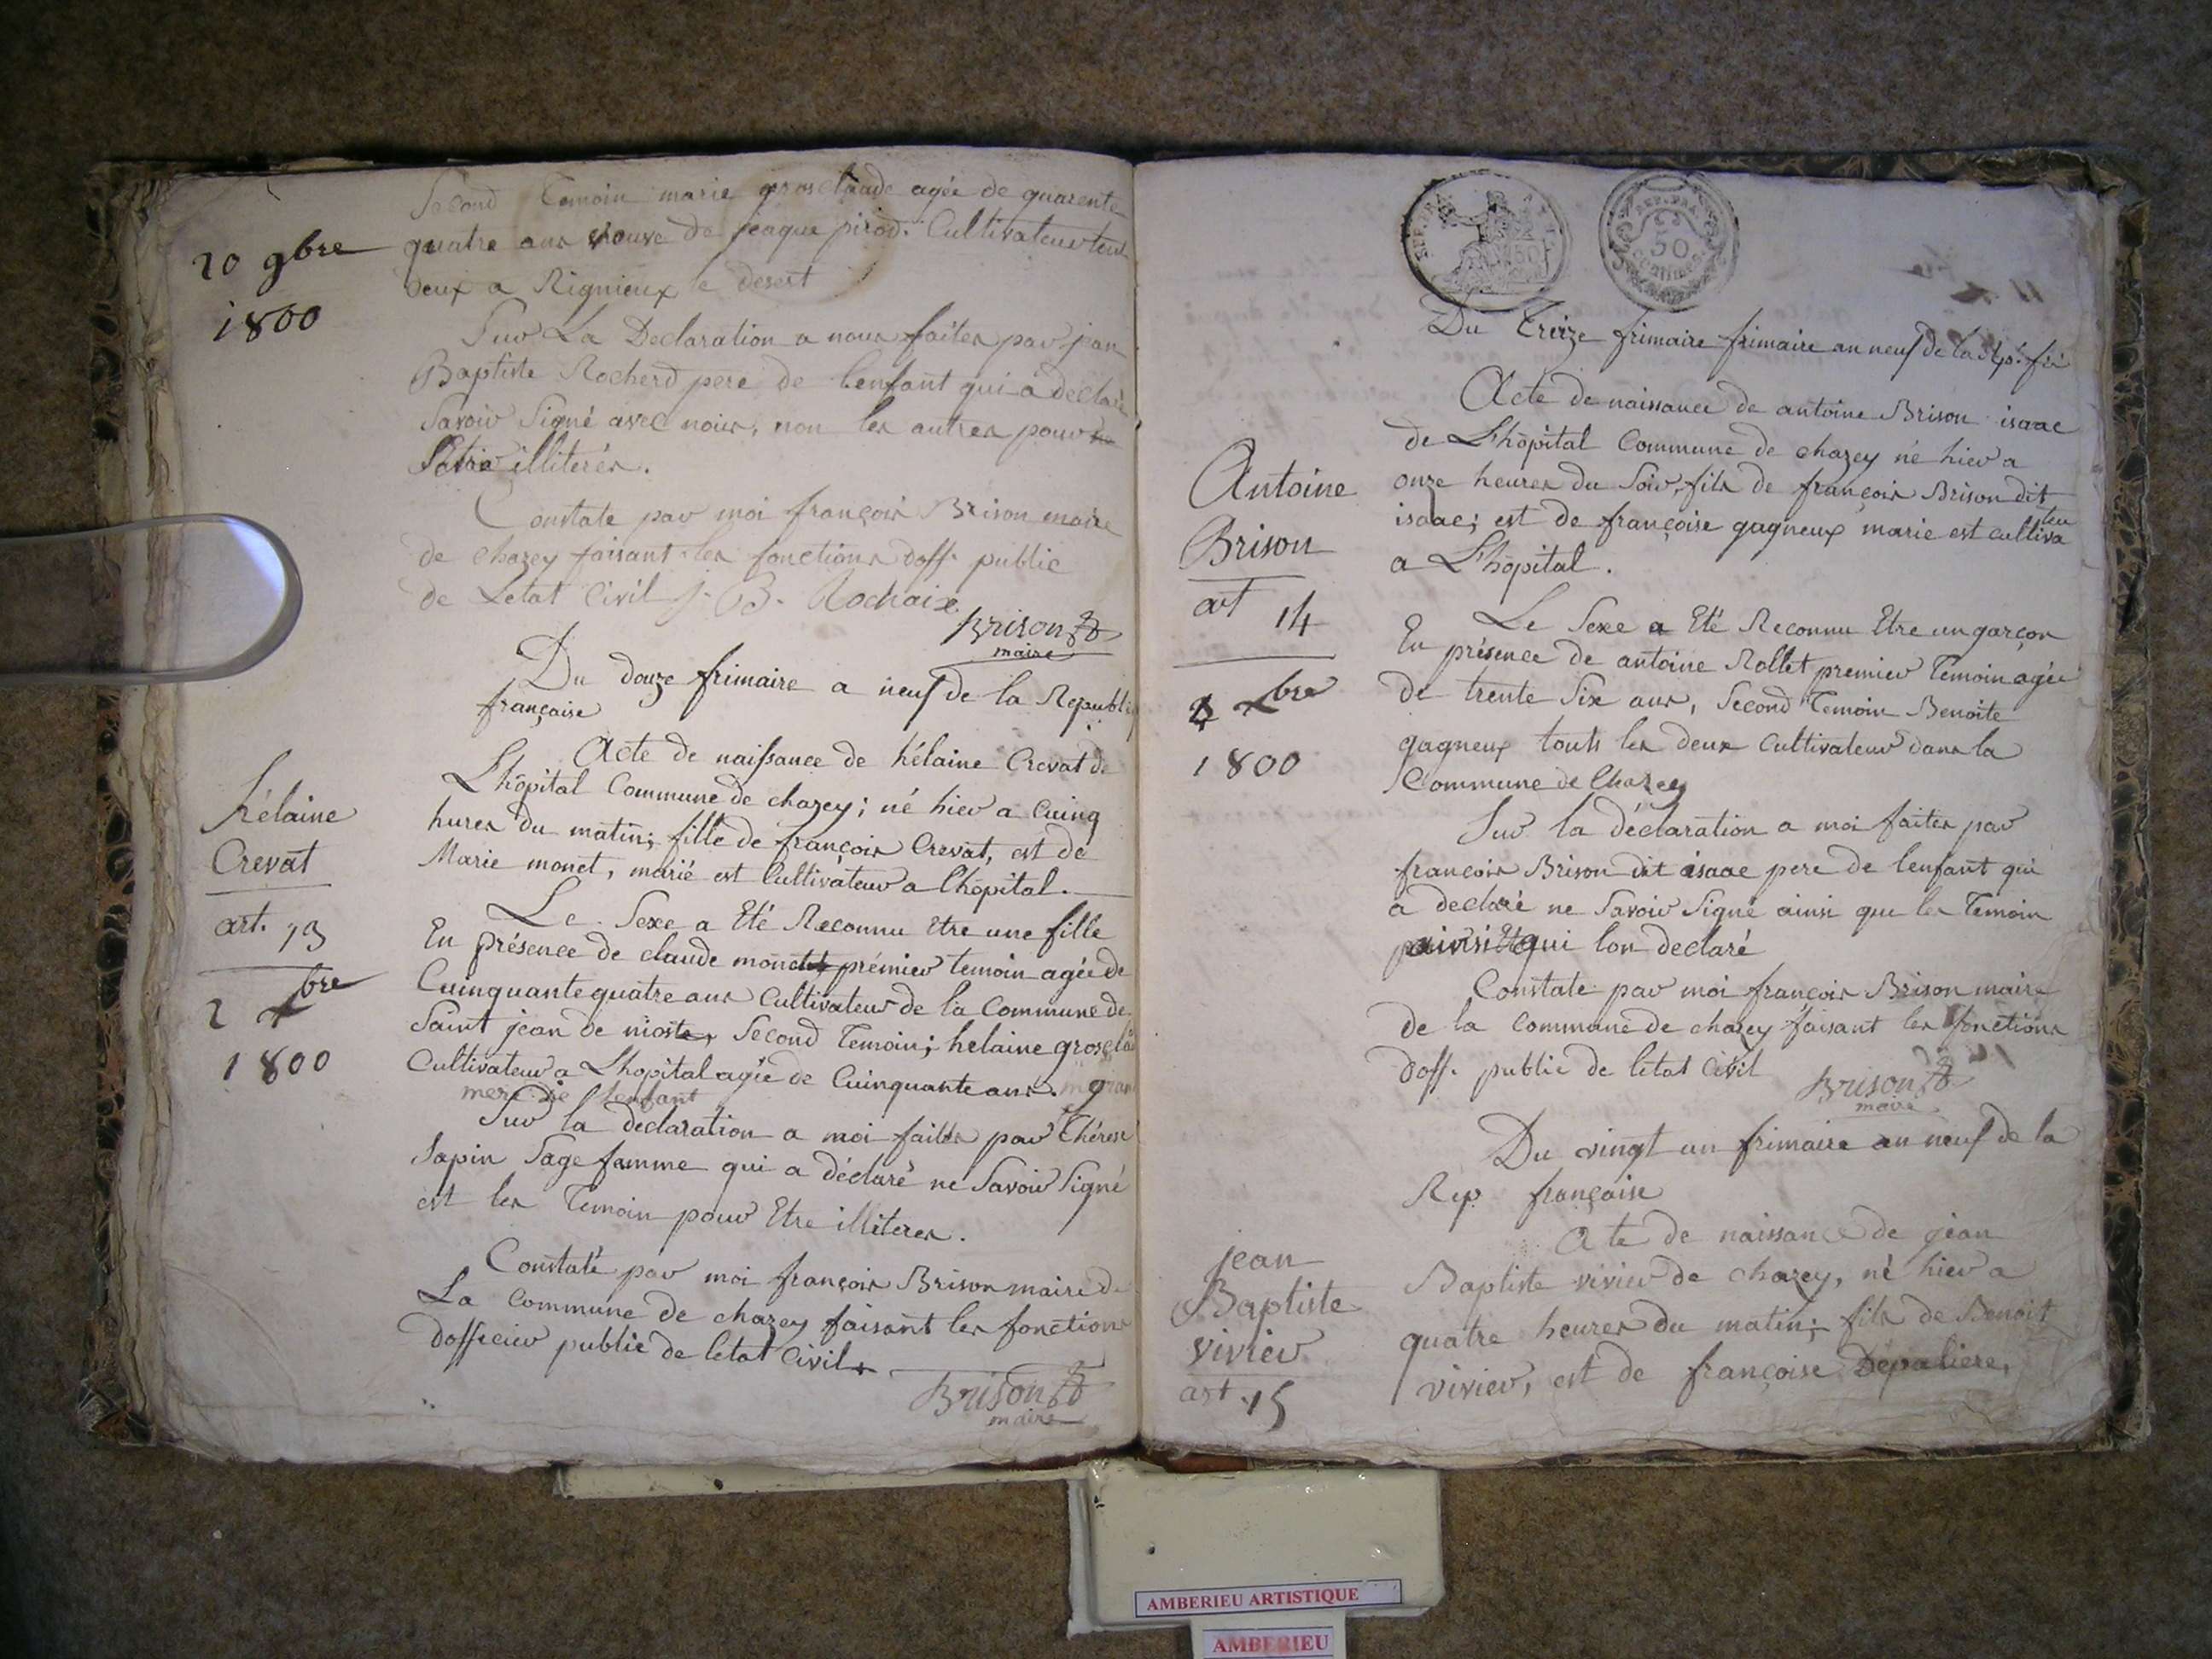 20 9bre
1800
Second Temoin marie grosclaude agée de quarente
quatre ans veuve de jeaque pirod. Cultivateur tous
deux a Rignieux le desert
Sur La Declaration a nous faites par jean
Baptiste Rocherd pere de lenfant qui a declaré
Savoir Signé avec nous, non les autres pour
illiterés.
Constate par moi françois Brison maire
de chazey faisant les fonctions doff. public
de Letat Civil J. B. Rochaix
Brison
maire
Du douze frimaire a neuf de la Republi
française
hélaine
Crevat
art. 13
2 Xbre
1800
Acte de naissance de hélaine Crevat de
Lhôpital Commune de chazey; né hier a Cuinq
hures du matin; fille de françois Crevat, est de
Marie monet, marié est Cultivateur a lhôpital.
Le Sexe a Eté Reconnu Etre une fille
En présence de claude monet prémier temoin agée de
Cuinquante quatre ans Cultivateur de la Commune de
Saint jean de nioste, Second Temoin; helaine grosclau
Cultivateur a Lhopital agée de Cuinquante ans. gran
mere de lenfant
Sur la declaration a moi faites par Thérese
Sapin Sage famme qui a déclaré ne Savoir Signé
est les Temoin pour Etre illiteres.
Constaté par moi françois Brison maire de
La Commune de chazey faisant les fonctions
dofficier public de letat Civil
Brison
maire
REP. FRA.
50
centimes
Du Treize frimaire frimaire an neuf de la Rép. fré
Antoine
Brison
art 14
Xbre
1800
Acte de naissance de antoine Brison isaac
de Lhôpital Commune de chazey né hier a
onze heures du Soir, fils de françois Brison dit
isaac; est de françoise gagneux marie est cultivateu
a Lhôpital.
Le Sexe a Eté Reconnu Etre un garçon
En présence de antoine Rollet premier Temoin agée
de trente Six ans, Second Temoin Benoite
gagneux touts les deux Cultivateur dans la
Commune de Chazey
Sur la déclaration a moi faites par
françois Brison dit isaac pere de lenfant qui
a declaré ne Savoir Signé ainsi que les Temoin
qui lon declaré
Constate par moi françois Brison maire
de la Commune de chazey faisant les fonctions
doff. public de letat Civil
Brison
maire
Du vingt un frimaire an neuf de la
Rep. française
jean
Baptiste
vivier
art. 15
Acte de naissance de jean
Baptiste vivier de chazey, né hier a
quatre heures du matin; fils de Benoit
vivier, est de françoise Depaliere,
AMBERIEU ARTISTIQUE
AMBERIEU